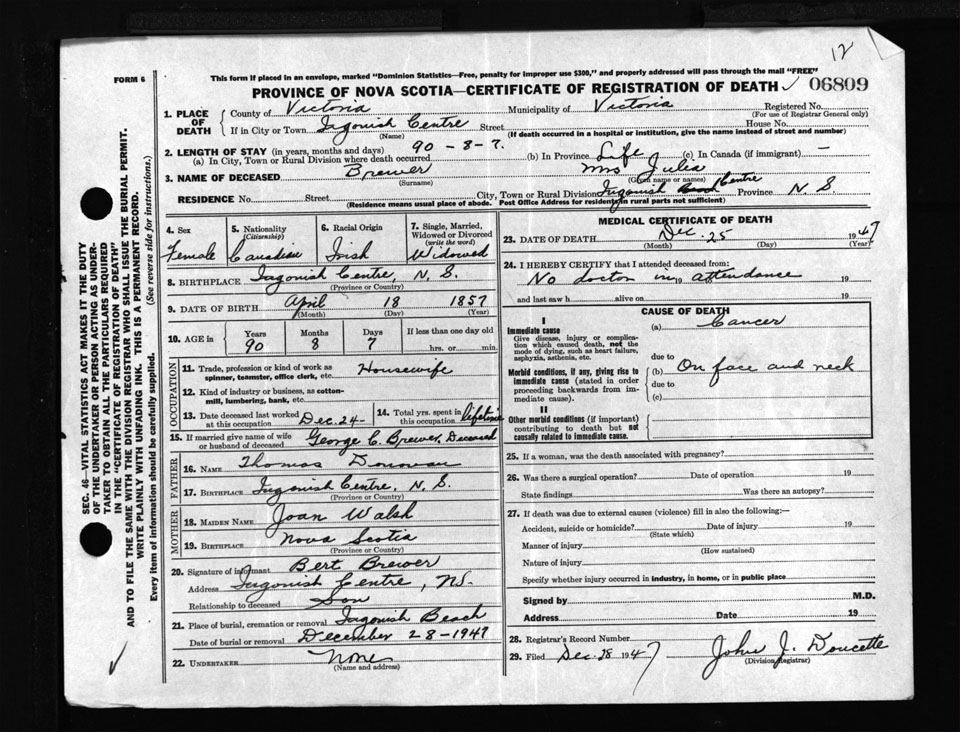 12
FORM 6
This form if placed in an envelope, marked "Dominion Statistics—Free, penalty for improper use $300," and properly addressed will pass through the mail "FREE"
PROVINCE OF NOVA SCOTIA—CERTIFICATE OF REGISTRATION OF DEATH
06809
SEC. 46—VITAL STATISTICS ACT MAKES IT THE DUTY
OF THE UNDERTAKER OR PERSON ACTING AS UNDER-
TAKER TO OBTAIN ALL THE PARTICULARS REQUIRED
IN THE "CERTIFICATE OF REGISTRATION OF DEATH"
AND TO FILE THE SAME WITH THE DIVISION REGISTRAR WHO SHALL ISSUE THE BURIAL PERMIT.
WRITE PLAINLY WITH UNFADING INK. THIS IS A PERMANENT RECORD.
Every item of information should be carefully supplied. (See reverse side for instructions.)
1. PLACE OF DEATH
County of Victoria Municipality of Victoria Registered No.
(For use of Registrar General only)
If in City or Town Ingonish Centre Street House No.
(Name) (If death occurred in a hospital or institution, give the name instead of street and number)
2. LENGTH OF STAY (in years, months and days) 90-8-7.
(a) In City, Town or Rural Division where death occurred (b) In Province Life (c) In Canada (if immigrant) —
3. NAME OF DECEASED Brewer Mrs Julia
(Surname) (Given name or names)
RESIDENCE No. Street City, Town or Rural Division Ingonish Centre Province N.S.
(Residence means usual place of abode. Post Office Address for residents in rural parts not sufficient)
4. Sex
Female
5. Nationality
(Citizenship)
Canadian
6. Racial Origin
Irish
7. Single, Married,
Widowed or Divorced
(write the word)
Widowed
8. BIRTHPLACE Ingonish Centre, N.S.
(Province or Country)
9. DATE OF BIRTH April 18 1857
(Month) (Day) (Year)
10. AGE in
Years Months Days If less than one day old
90 8 7 hrs. or min.
OCCUPATION
11. Trade, profession or kind of work as
spinner, teamster, office clerk, etc. Housewife
12. Kind of industry or business, as cotton-
mill, lumbering, bank, etc.
13. Date deceased last worked
at this occupation Dec. 24-
14. Total yrs. spent in
this occupation lifetime
15. If married give name of wife
or husband of deceased George C. Brewer, Deceased
FATHER
16. NAME Thomas Donovan
17. BIRTHPLACE Ingonish Centre, N.S.
(Province or Country)
MOTHER
18. MAIDEN NAME Joan Walsh
19. BIRTHPLACE Nova Scotia
(Province or Country)
20. Signature of informant Bert Brewer
Address Ingonish Centre, NS.
Relationship to deceased Son
21. Place of burial, cremation or removal Ingonish Beach
Date of burial or removal December 28-1947
22. UNDERTAKER None
(Name and address)
MEDICAL CERTIFICATE OF DEATH
23. DATE OF DEATH Dec. 25 1947
(Month) (Day) (Year)
24. I HEREBY CERTIFY that I attended deceased from:
No doctor in 19 attendance 19
and last saw h alive on 19
CAUSE OF DEATH
I
Immediate cause
Give disease, injury or complica-
tion which caused death, not the
mode of dying, such as heart failure,
asphyxia, asthenia, etc.
(a) Cancer
due to
Morbid conditions, if any, giving rise to
immediate cause (stated in order
proceeding backwards from im-
mediate cause).
(b) On face and neck
due to
(c)
II
Other morbid conditions (if important)
contributing to death but not
causally related to immediate cause.
25. If a woman, was the death associated with pregnancy?
26. Was there a surgical operation? Date of operation 19
State findings Was there an autopsy?
27. If death was due to external causes (violence) fill in also the following:—
Accident, suicide or homicide? Date of injury 19
(State which)
Manner of injury
(How sustained)
Nature of injury
Specify whether injury occurred in industry, in home, or in public place
Signed by M.D.
Address Date 19
28. Registrar's Record Number
29. Filed Dec. 28 1947 John J. Doucette
(Division Registrar)